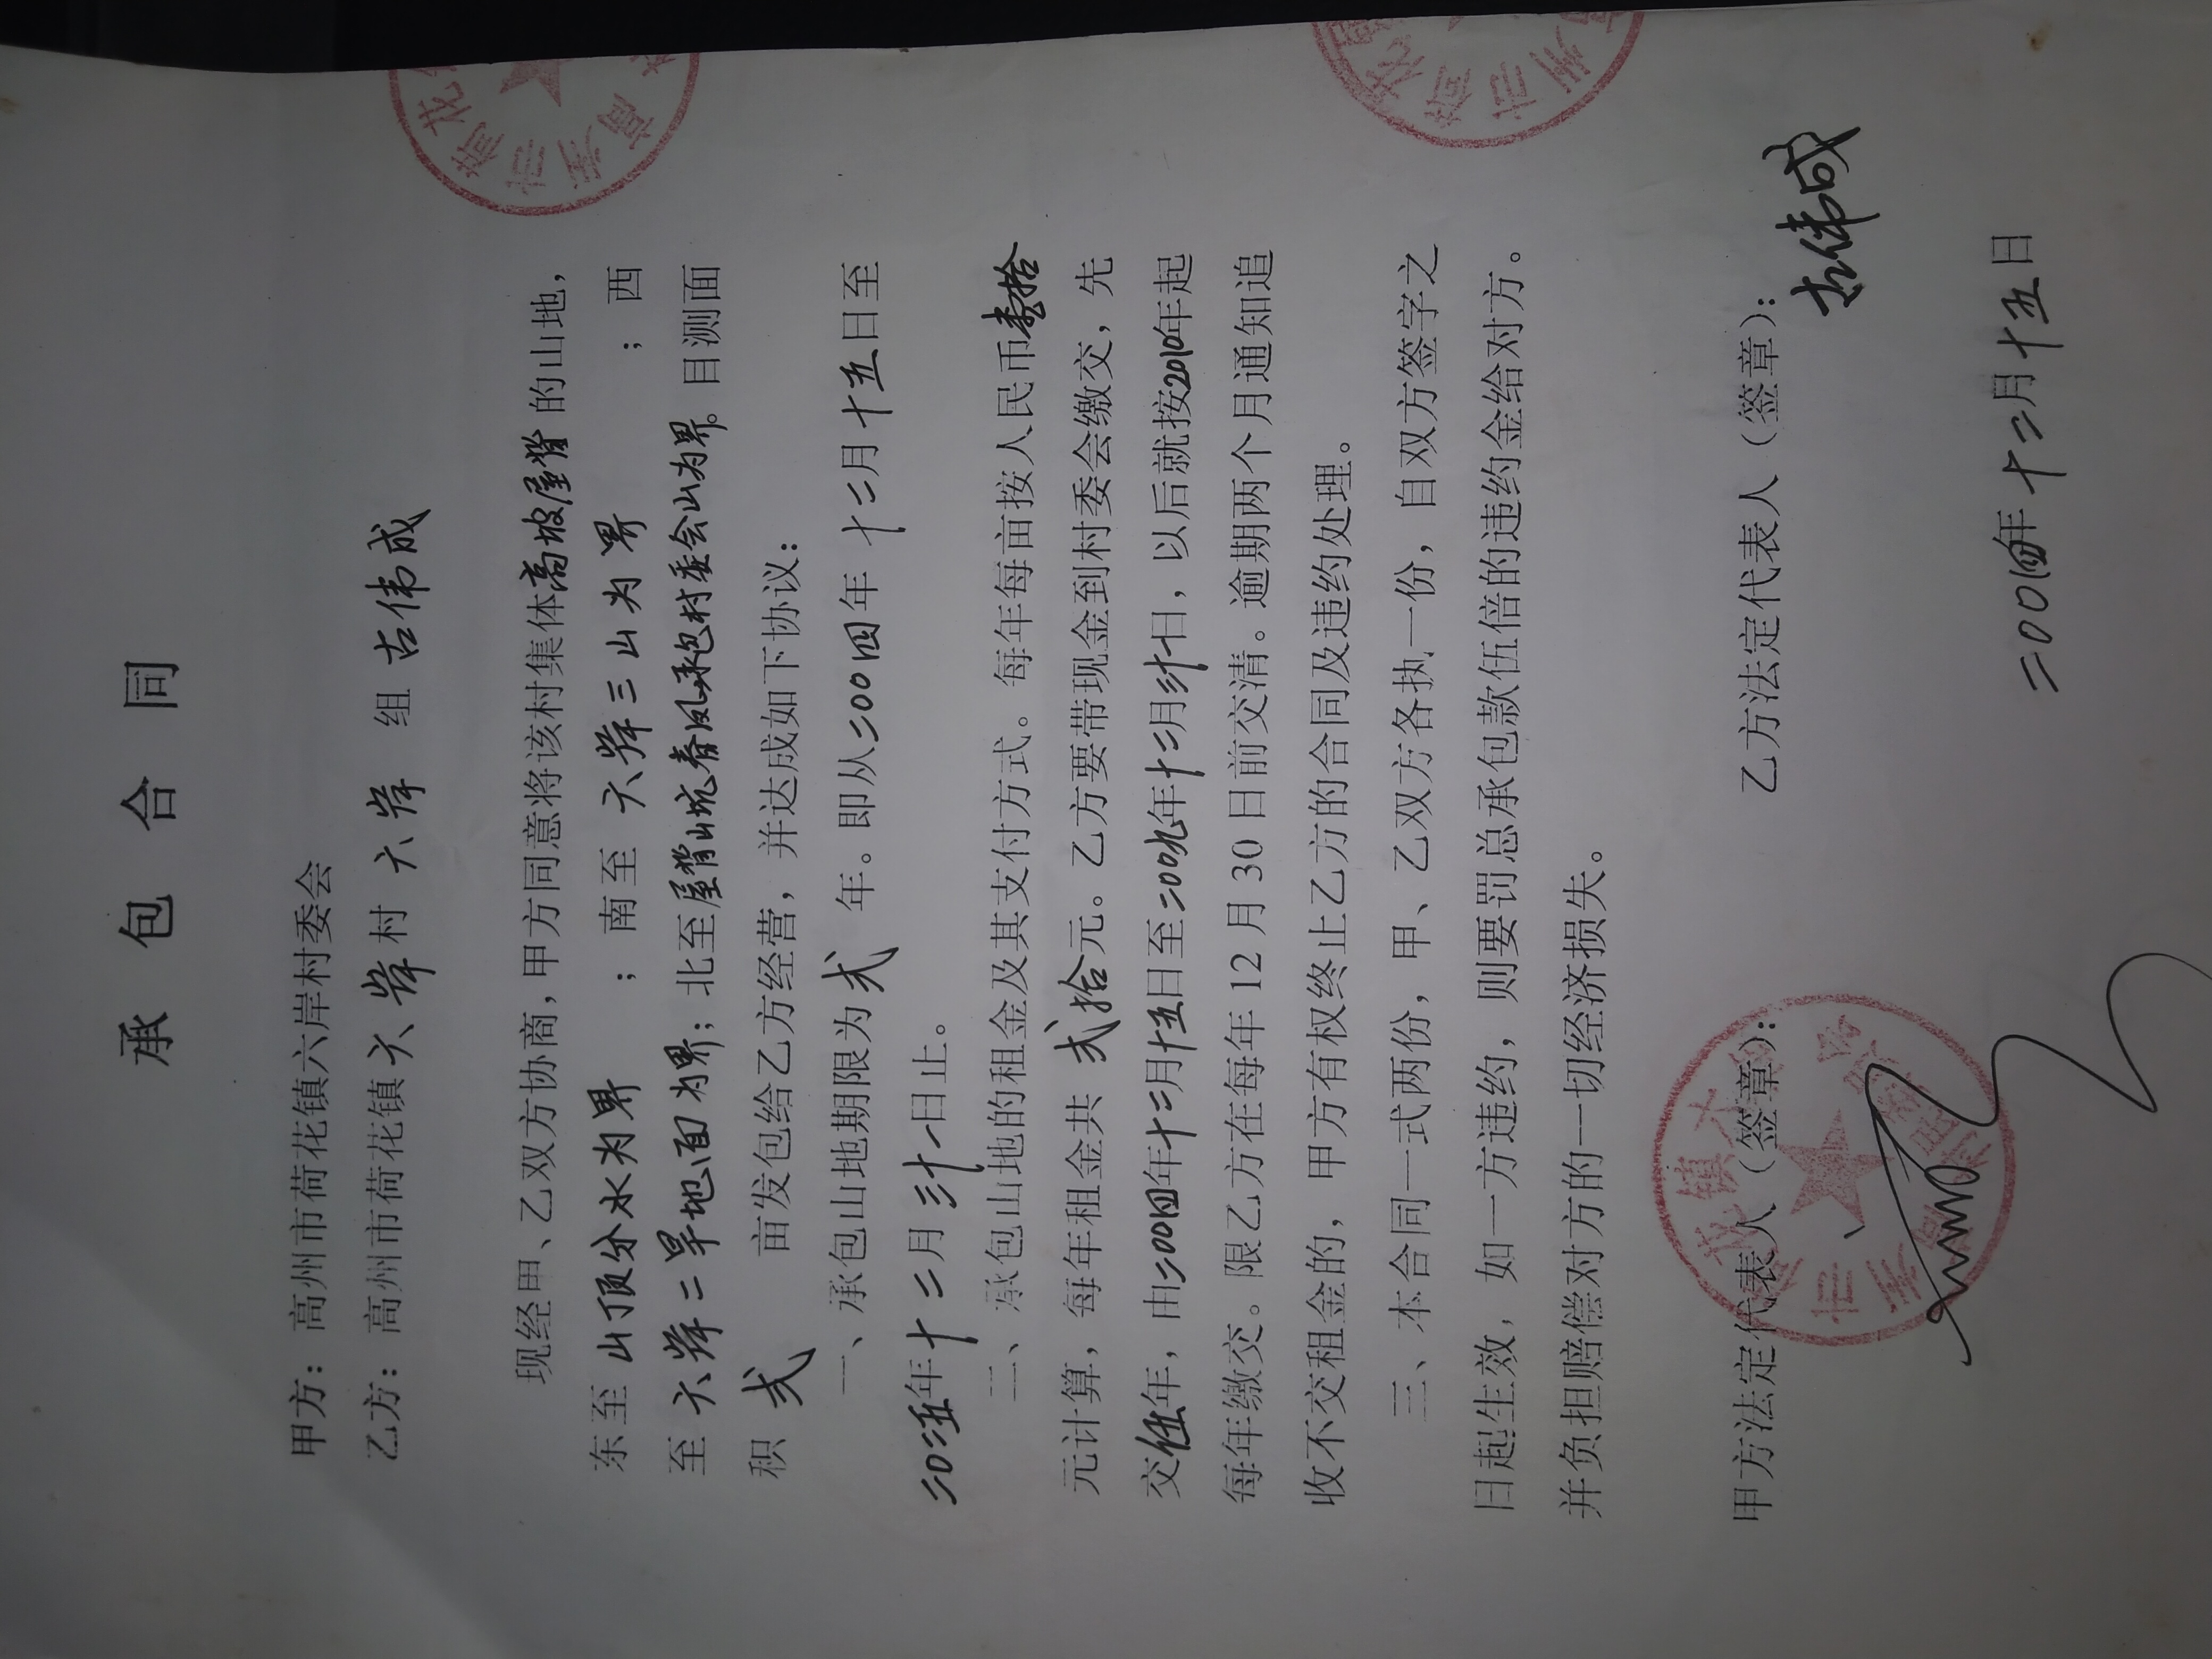 承包合同
甲方：高州市荷花镇六岸村委会
乙方：高州市荷花镇六岸村六岸组古伟成
现经甲、乙双方协商，甲方同意将该村集体高坡屋背的山地，
东至山顶分水为界；南至六岸三山为界；西
至六岸二旱地面为界；北至屋背山坑春凤承包村委会山为界。目测面
积贰亩发包给乙方经营，并达成如下协议：
一、承包山地期限为贰年。即从二00四年十二月十五日至
二0二五年十二月卅一日止。
二、承包山地的租金及其支付方式。每年每亩按人民币壹拾
元计算，每年租金共贰拾元。乙方要带现金到村委会缴交，先
交伍年，由二00四年十二月十五日至二00九年十二月卅一日，以后就按2010年起
每年缴交。限乙方在每年12月30日前交清。逾期两个月通知追
收不交租金的，甲方有权终止乙方的合同及违约处理。
三、本合同一式两份，甲、乙双方各执一份，自双方签字之
日起生效，如一方违约，则要罚总承包款伍倍的违约金给对方。
并负担赔偿对方的一切经济损失。
甲方法定代表人（签章）： 乙方法定代表人（签章）：
古伟成
二00四年十二月十五日